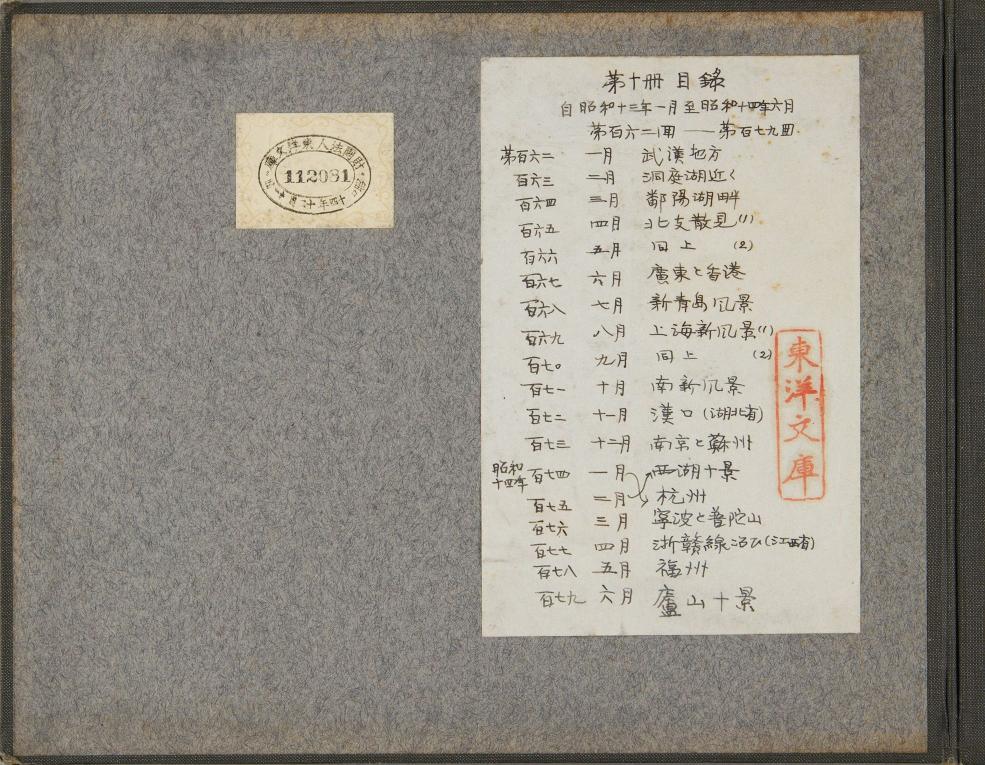 財團法人東洋文庫
112081
昭和十四年十二月十一日
第十冊 目録
自昭和十三年一月至昭和十四年六月
第百六二回 ── 第百七九回
第百六二 一月 武漢地方
百六三 二月 洞庭湖近く
百六四 三月 鄱陽湖畔
百六五 四月 北支散見(1)
百六六 五月 同上 (2)
百六七 六月 廣東と香港
百六八 七月 新青島風景
百六九 八月 上海新風景(1)
百七〇 九月 同上 (2)
百七一 十月 南新風景
百七二 十一月 漢口(湖北省)
百七三 十二月 南京と蘇州
昭和十四年 百七四 一月 西湖十景
百七五 二月 杭州
百七六 三月 寧波と普陀山
百七七 四月 浙贛線沿ひ(江西省)
百七八 五月 福州
百七九 六月 廬山十景
東洋文庫